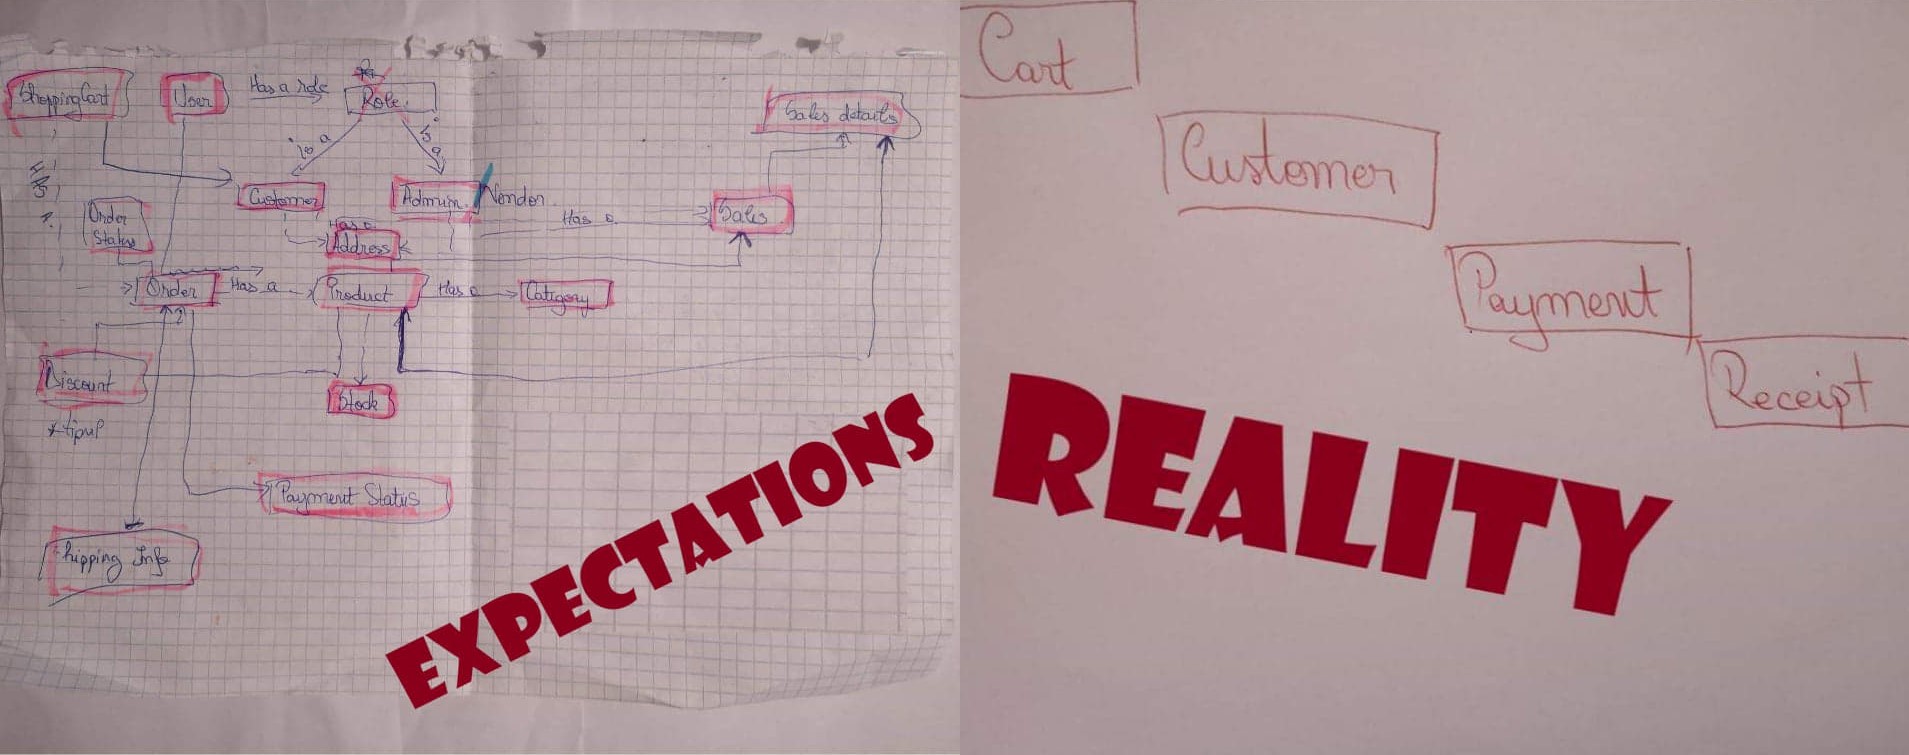 Shopping Cart
User
Has a role
Role.
Sales details
is a
is a
Customer
Admin
Vendor
Sales
Has a
Order
Status
Has a
Address
Order
Has a
Product
Has a
Category
?
Discount
Stock
Payment Status
Shipping Info
EXPECTATIONS
Cart
Customer
Payment
Receipt
REALITY